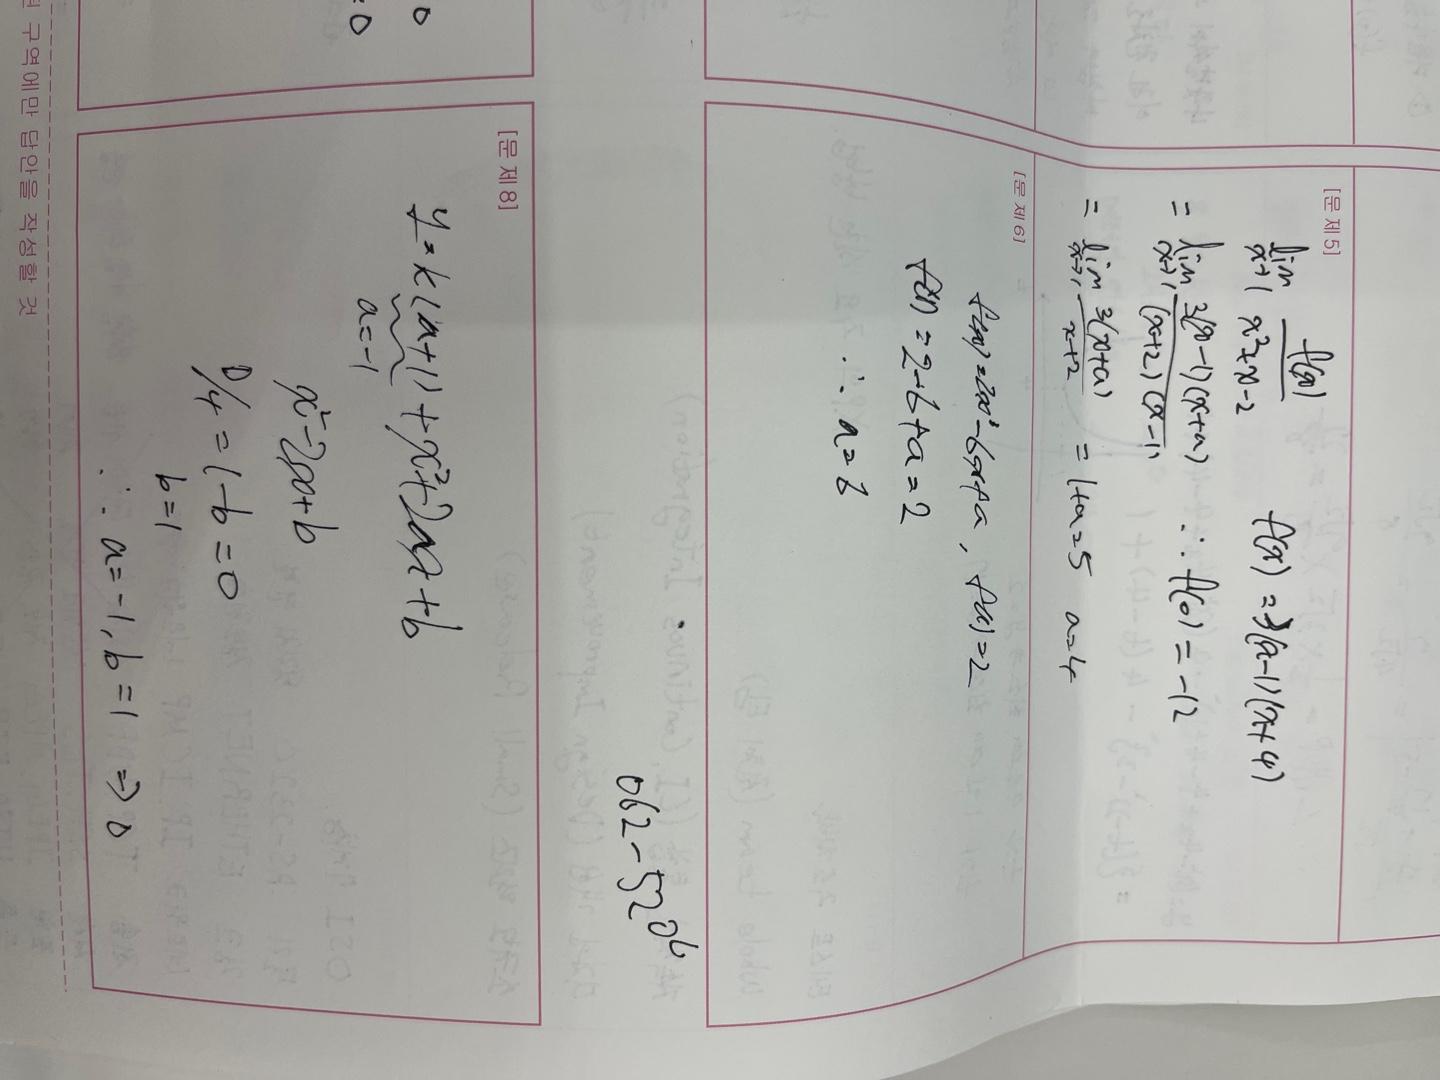 [문 제 5]
lim x→1 f(x)/x²+x-2 f(x) = 3(x-1)(x+4)
= lim x→1 3(x-1)(x+a)/(x+2)(x-1) ∴ f(0) = -12
= lim x→1 3(x+a)/x+2 = 1+a=5 a=4
[문 제 6]
, f(1)=2
f(1) = 2-6+a=2
∴ a=6
062-5206
[문 제 8]
y = k(a+1) + x²+2ax+b
a=-1
x²-2x+b
D/4 = 1-b=0
b=1
∴ a=-1, b=1 ⇒ 0
구역에만 답안을 작성할 것
0
=0